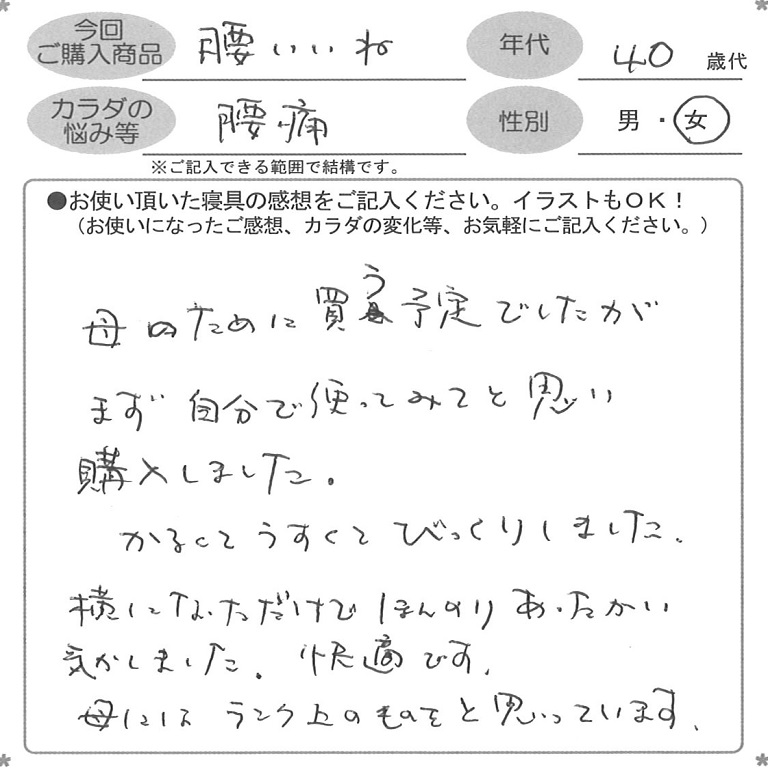 今回
ご購入商品
腰いいね
年代
40 歳代
カラダの
悩み等
腰痛
性別
男・女
※ご記入できる範囲で結構です。
●お使い頂いた寝具の感想をご記入ください。イラストもOK！
（お使いになったご感想、カラダの変化等、お気軽にご記入ください。）
母のために買う予定でしたが
まず自分で使ってみてと思い
購入しました。
かるくてうすくてびっくりしました。
横になっただけでほんのりあったかい
気がしました。快適です。
母にはランク上のものをと思っています。